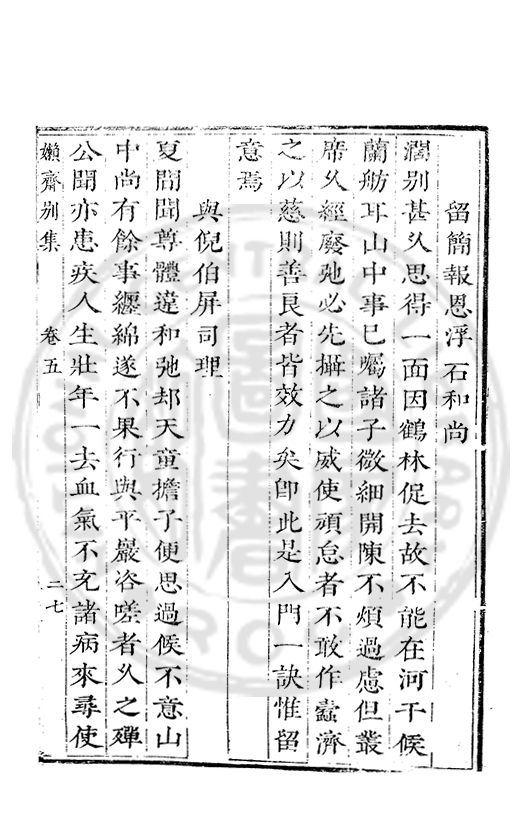 留簡報恩浮石和尚
濶别甚久思得一面因鶴林促去故不能在河干候
蘭舫耳山中事已囑諸子微細開陳不煩過慮但叢
席久經廢弛必先攝之以威使頑怠者不敢作蠧濟
之以慈則善良者皆效力矣卽此是入門一訣惟留
意焉
與倪伯屏司理
夏間聞尊體違和弛却天童擔子便思過候不意山
中尚有餘事纏綿遂不果行與平巖咨嗟者久之殫
公聞亦患疾人生壯年一去血氣不充諸病來尋使
嬾齋别集 卷五 二七